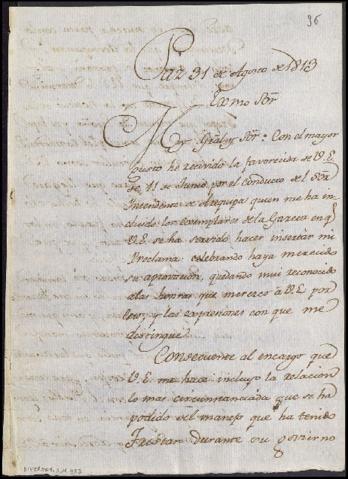 96
Paz 31 de Agosto de 1813
Exmo Sor
Muy Sor: Con el mayor
gusto he recivido la favorecida de V.E.
de 11 de Junio, por el conducto del Sor
Intendente de Arequipa quien me ha in
cluido los exemplares de la Gazeta en q.e
V.E. se ha servido hacer insertar mi
Proclama: celebrando haya merecido
su aprovacion, quedando mui reconocido
a las honrras que merezco a V.E. por
y las expresiones con que me
distingue.
Consequente al encargo que
V.E. me hace incluyo la relacion
lo mas circunstanciada que se ha
podido del manejo que ha tenido
Tristan durante su govierno
DIVERSOS